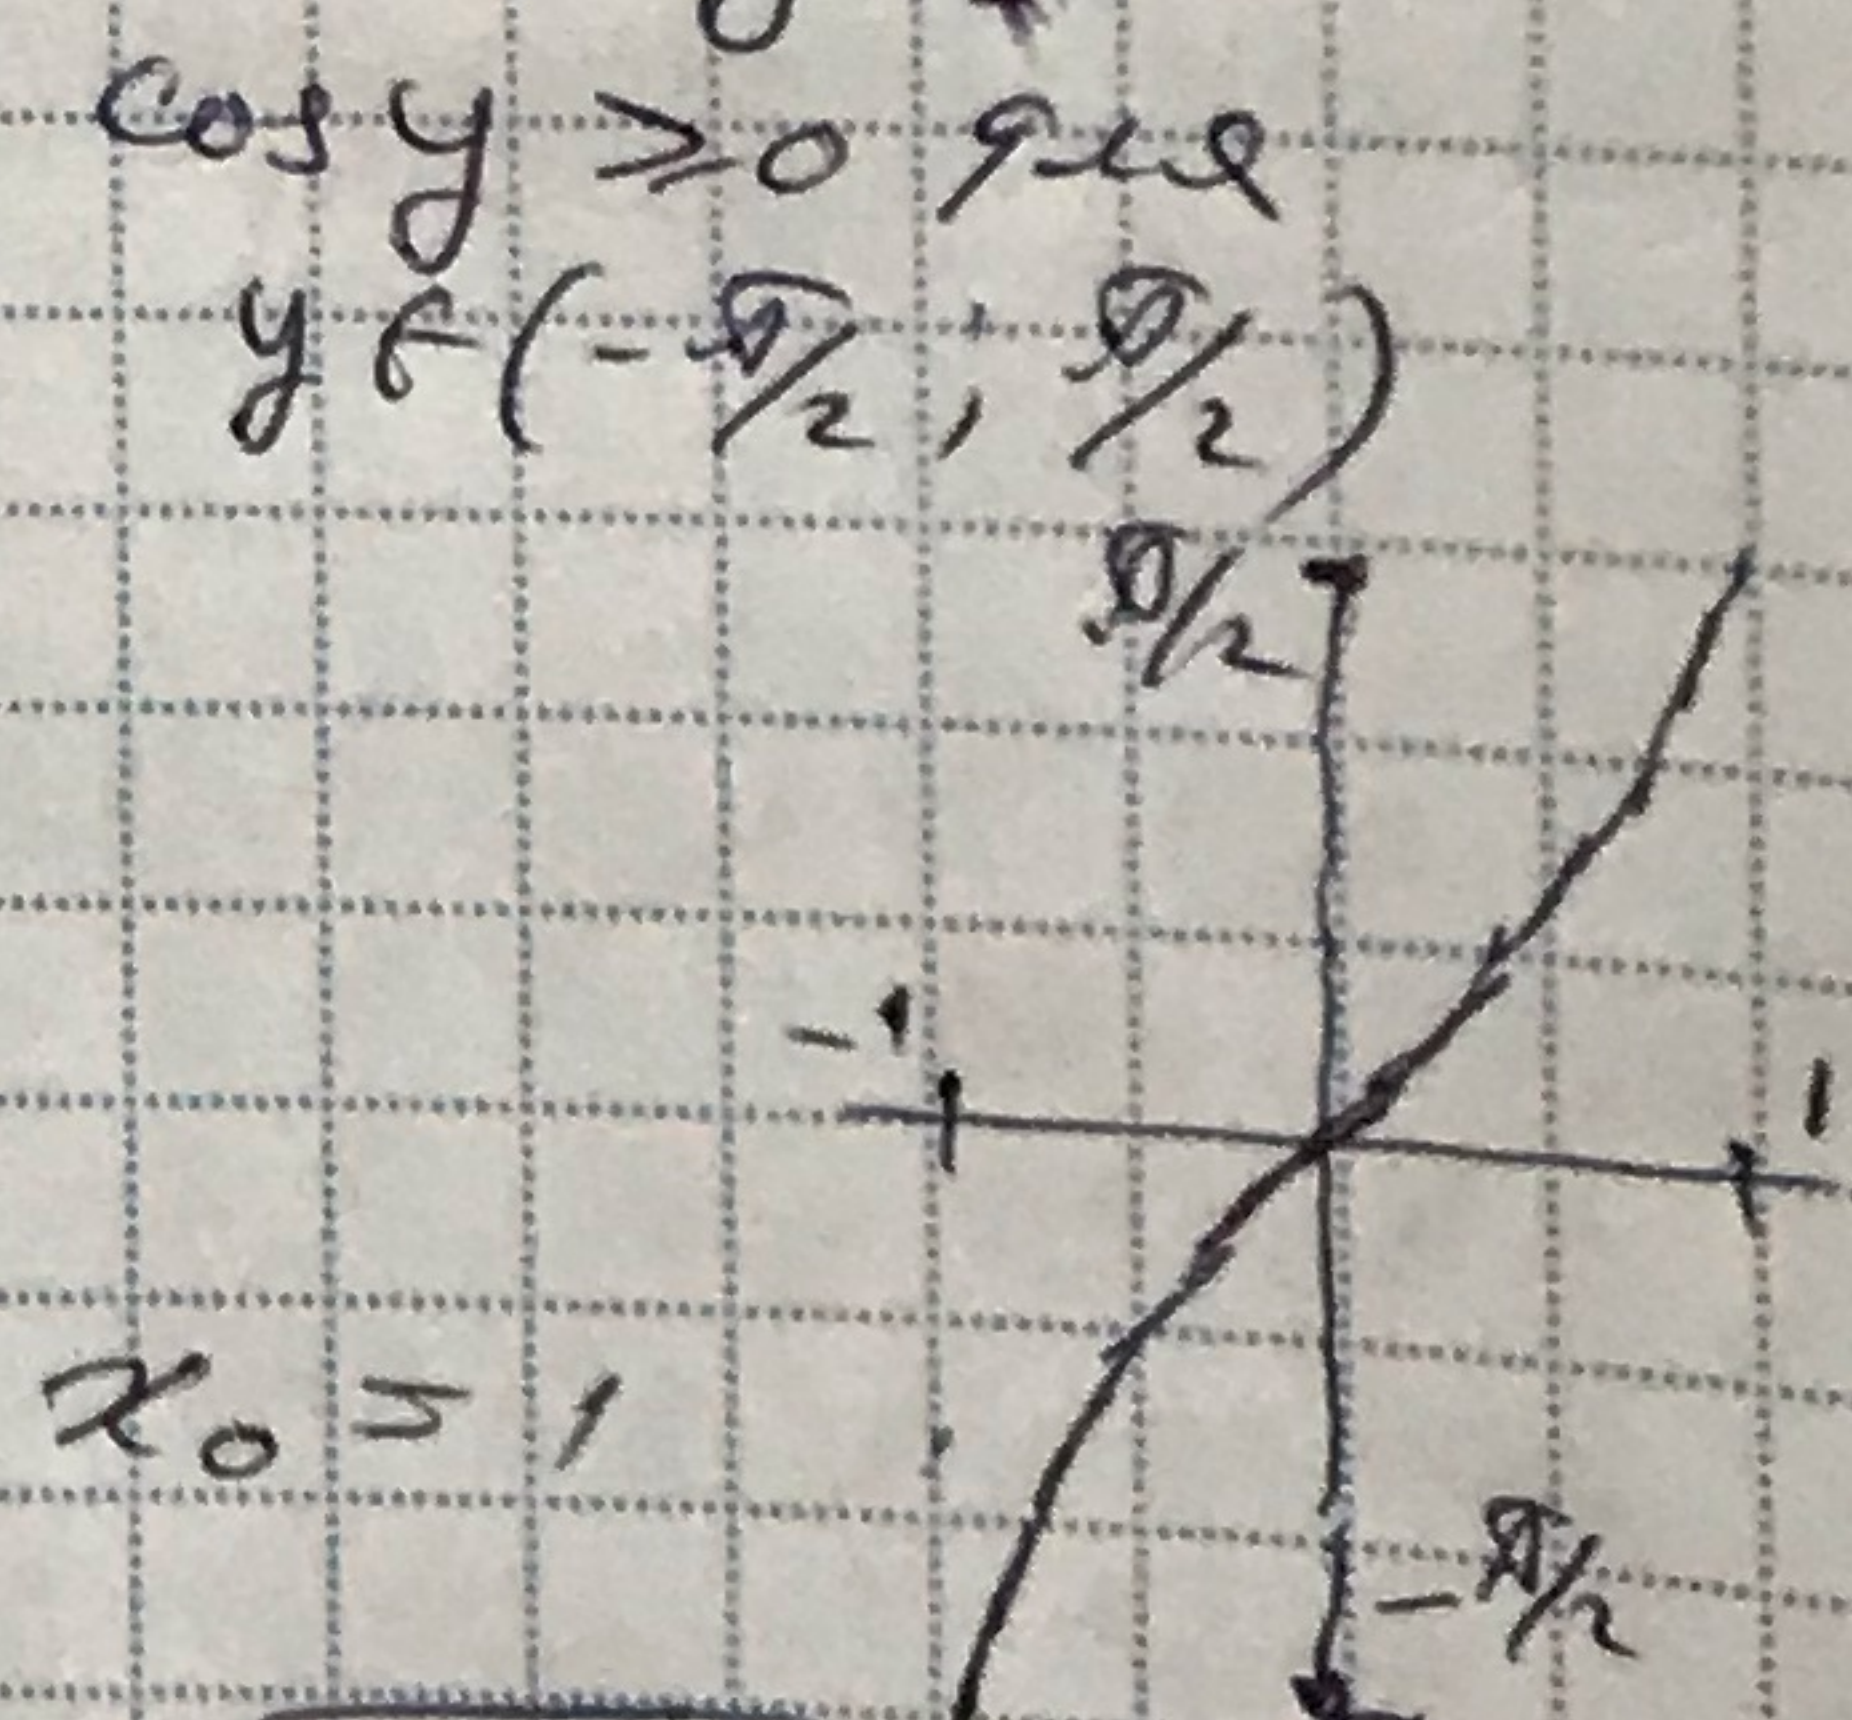 cos y ⩾ 0 для
y ∈ (-π/2, π/2)
π/2
-1
1
x₀ = 1
-π/2